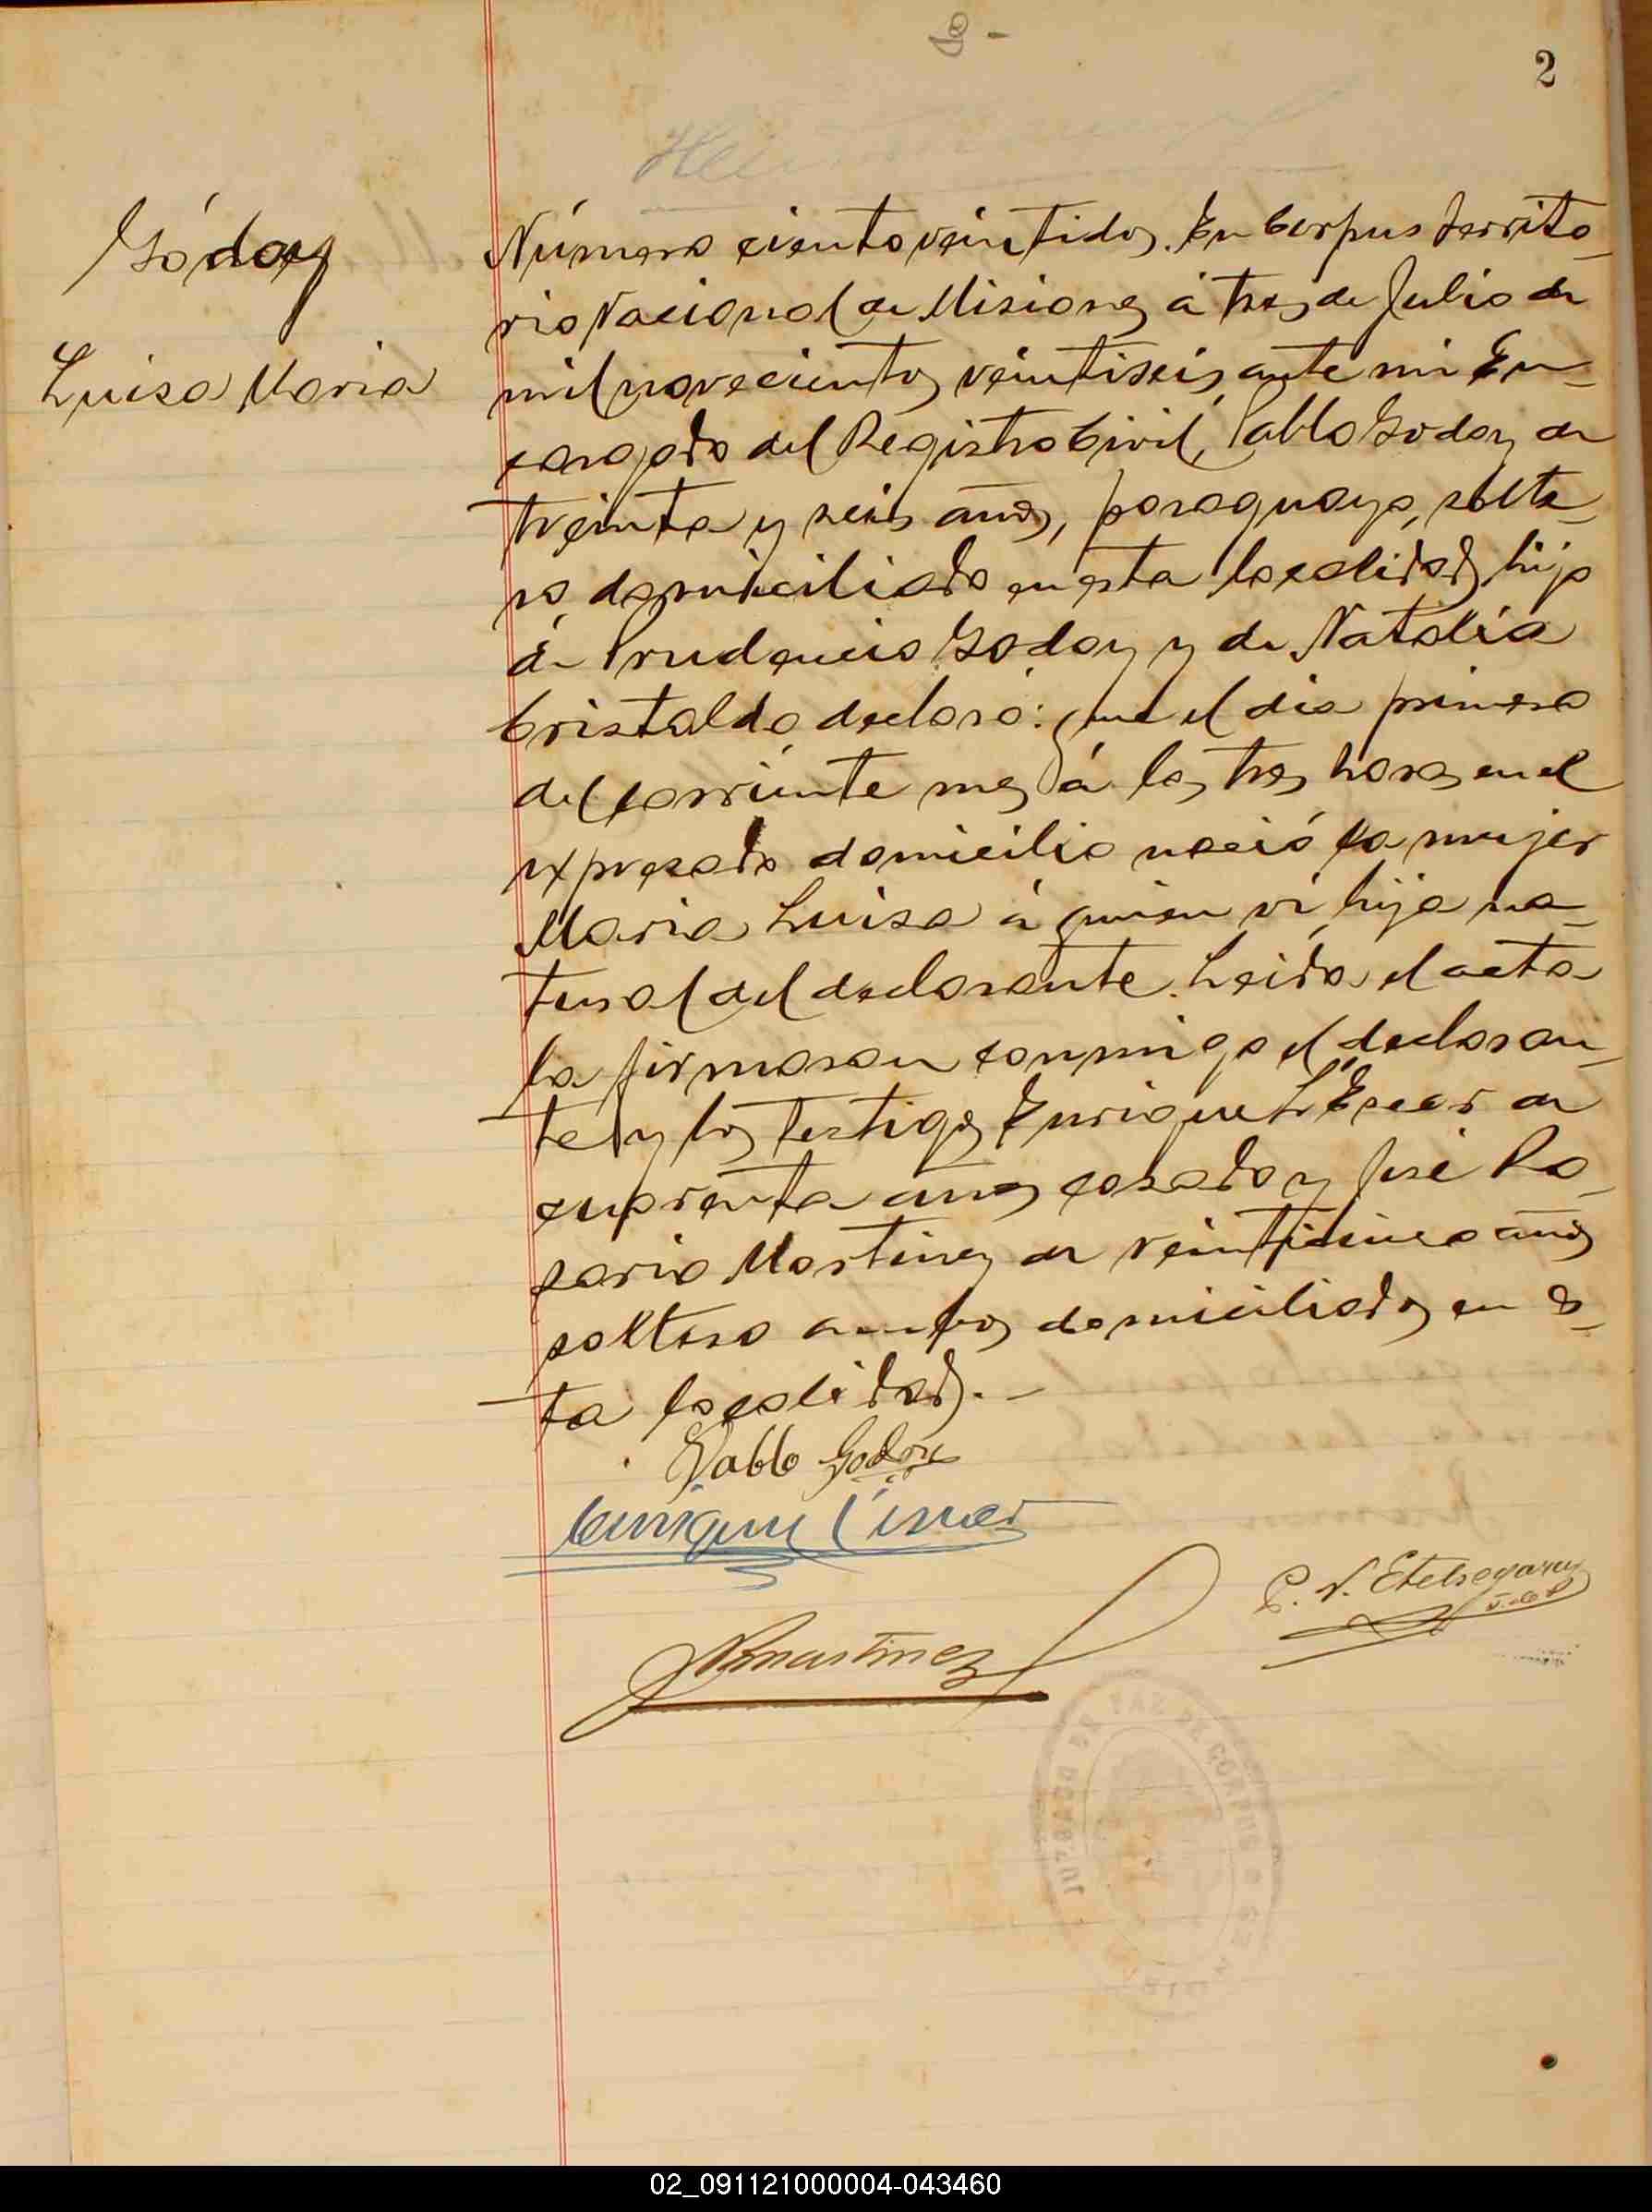 2
Gódoy
Luisa Maria
Número ciento veintidos. En Corpus Territo_
rio Nacional de Misiones á tres de Julio de
mil novecientos veintiseis, ante mi En_
cargado del Registro Civil, Pablo Godoy de
treinta y seis años, paraguayo, solte_
ro, domiciliado en esta localidad, hijo
de Prudencio Godoy y de Natalia
Cristaldo, declaró: que el dia primero
del corriente mes á las tres horas en el
expresado domicilio nació la mujer
Maria Luisa á quien vi, hija na_
tural del declarante. Leida el acta
la firmaron conmigo el declaran_
te y los testigos Enrique de
cuarenta años casado y José Ro_
sario Martinez de veinticinco años
soltero ambos domiciliados en es_
ta localidad. _
Pablo Godoy
Enrique
Martinez
P. N. Etchegaray
JUZGADO DE PAZ DE CORPUS
02_091121000004-043460